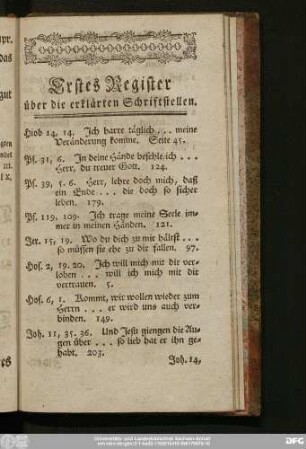 Erstes Register
über die erklärten Schriftstellen.
Hiob 14, 14. Ich harre täglich . . . meine
Veränderung komme. Seite 45.
Ps. 31, 6. In deine Hände befehle ich . . .
Herr, du treuer Gott. 124.
Ps. 39, 5. 6. Herr, lehre doch mich, daß
ein Ende . . . die doch so sicher
leben. 179.
Ps. 119, 109. Ich trage meine Seele im-
mer in meinen Händen. 121.
Jer. 15, 19. Wo du dich zu mir hältst . . .
so müssen sie ehe zu dir fallen. 97.
Hos. 2, 19. 20. Ich will mich mit dir ver-
loben . . . will ich mich mit dir
vertrauen. 5.
Hos. 6, 1. Kommt, wir wollen wieder zum
Herrn . . . er wird uns auch ver-
binden. 149.
Joh. 11, 35. 36. Und Jesu giengen die Au-
gen über . . . so lieb hat er ihn ge-
habt. 203.
Joh. 14,
das
gut
Universitäts- und Landesbibliothek Sachsen-Anhalt
DFG